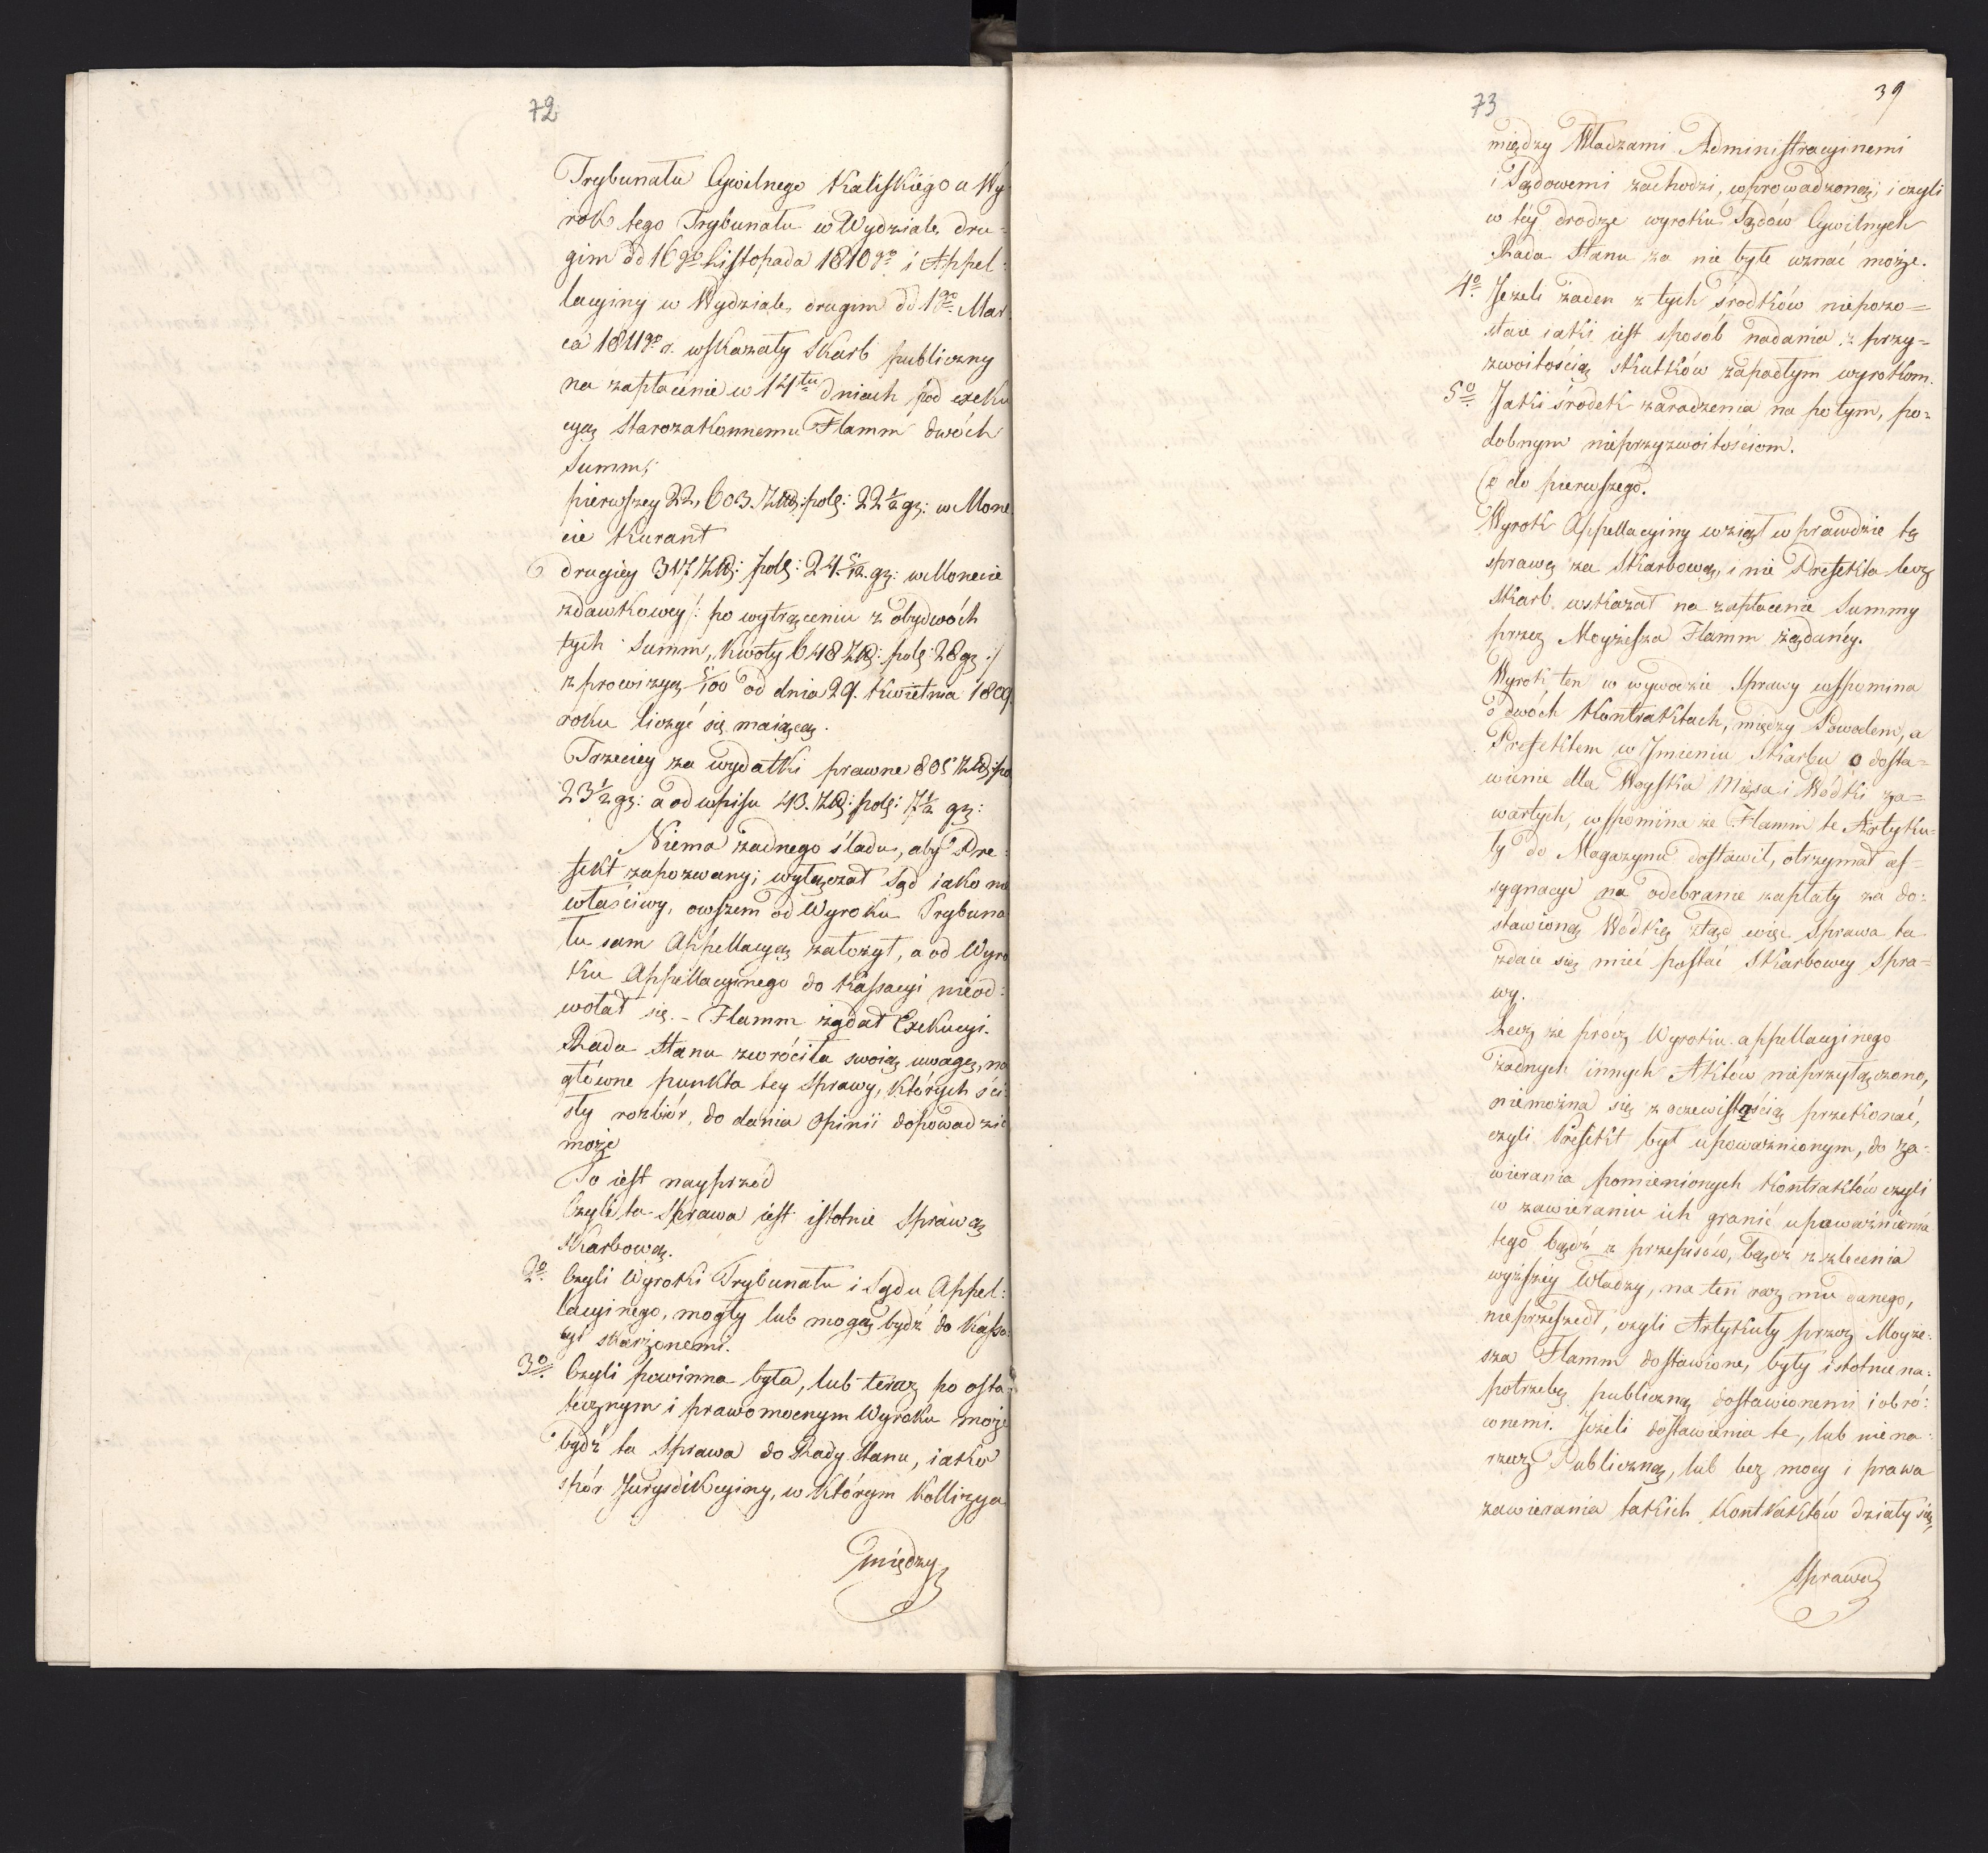 72
Trybunału Cywilnego Kaliskiego a Wy
rok tego Trybunału w Wydziale dru-
gim od 16go Listopada 1810go i Appel-
lacyiny w Wydziale drugim od 1go Mar
ca 1811go r. wskazały Skarb publiczny
na zapłacenie w 14tu dniach pod exeku
cyą Starozakonnemu Flamm dwóch
Summ,
pierwszey 22,603. Złł: pols: 22 1/2 gr: w Mone
cie Kurant
drugiey 317 Złł: pols: 24. 5/12. gr: w Monecie
zdawkowey /: po wytrąceniu z obydwóch
tych Summ, kwoty 648 Złł: pols: 28 gr :/
z prowizyą 5/100 od dnia 29. Kwietnia 1809.
roku liczyć się maiącą.
Trzeciey za wydatki prawne 805 Złł: po
23 1/2 gr: a od wpisu 43. Złł: pols: 7 1/2 gr:
Niema żadnego śladu, aby Pre-
fekt zapozwany; wyłączał Sąd iako nie
właściwy, owszem od Wyroku Trybuna
łu sam Appellacyą założył, a od Wyro
ku Appellacyinego do Kassacyi nieod-
wołał się. - Flamm żądał Exekucyi.
Rada Stanu zwróciła swoią uwagę, na
główne punkta tey Sprawy, których ści-
sły rozbiór, do dania Opinii dopowadzić
może
To iest nayprzód
Czyli ta Sprawa iest istotnie Sprawą
Skarbową.
2o. Czyli Wyroki Trybunału i Sądu Appel-
lacyinego, mogły lub mogą bydź do Kassa-
cyi skarżonemi.
3o. Czyli powinna była, lub teraz po osta-
tecznym i prawomocnym Wyroku może
bydź ta Sprawa do Rady Stanu, iako
spór Jurysdikcyiny, w którym Kollizya
między
73
39
między Władzami Administracyinemi
i Sądowemi zachodzi, wprowadzoną; i czyli
w tey drodze wyroku Sądów Cywilnych
Rada Stanu za nie byłe uznać może.
4o. Jeżeli żaden z tych środków niepozo=
staie iaki iest sposób nadania z przy=
zwoitością skutków zapadłym wyrokom.
5o. Jaki środek zaradzenia na potym, po=
dobnym nieprzyzwoitościom.
Co do pierwszego.
Wyrok Appellacyiny wziął wprawdzie tę
sprawę za Skarbową, i nie Prefekta lecz
Skarb wskazał na zapłacenie Summy
przez Moyżesza Flamm żądaney.
Wyrok ten w wywodzie Sprawy wspomina
o dwóch Kontraktach, między Powodem, a
Prefektem w Jmieniu Skarbu o dosta=
wienie dla Woyska Mięsa i Wódki za=
wartych, wspomina że Flamm te Artyku=
ły do Magazynu dostawił, otrzymał as=
sygnacye na odebranie zapłaty za do=
stawioną Wódkę ztąd więc Sprawa ta
zdaie się mieć postać Skarbowey Spra=
wy.
Lecz że prócz Wyroku appellacyinego
żadnych innych Aktów nieprzyłączono,
niemożna się z oczewistością przekonać,
czyli Prefekt był upoważnionym, do za-
wierania pomienionych Kontraktów czyli
w zawieraniu ich granic upoważnienia
tego bądź z przepisów, bądź z zlecenia
wyższey Władzy, na ten raz mu danego,
nieprzeszedł, czyli Artykuły przez Moyże-
sza Flamm dostawione, były istotnie na-
potrzebę publiczną dostawionemi i obró-
conemi. Jeżeli dostawienia te, lub nie na-
rzecz Publiczną, lub bez mocy i prawa
zawierania takich Kontraktów działy się,
Sprawa